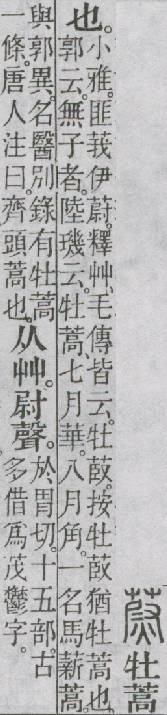 蔚 牡蒿
也。
小雅。匪莪伊蔚。釋艸、毛傳皆云。牡菣。按牡菣猶牡蒿也。
郭云。無子者。陸璣云。牡蒿、七月華。八月角。一名馬薪蒿。
與郭異。名醫別錄有牡蒿
一條。唐人注曰。齊頭蒿也。
从艸。尉聲。
於胃切。十五部。古
多借爲茂鬱字。